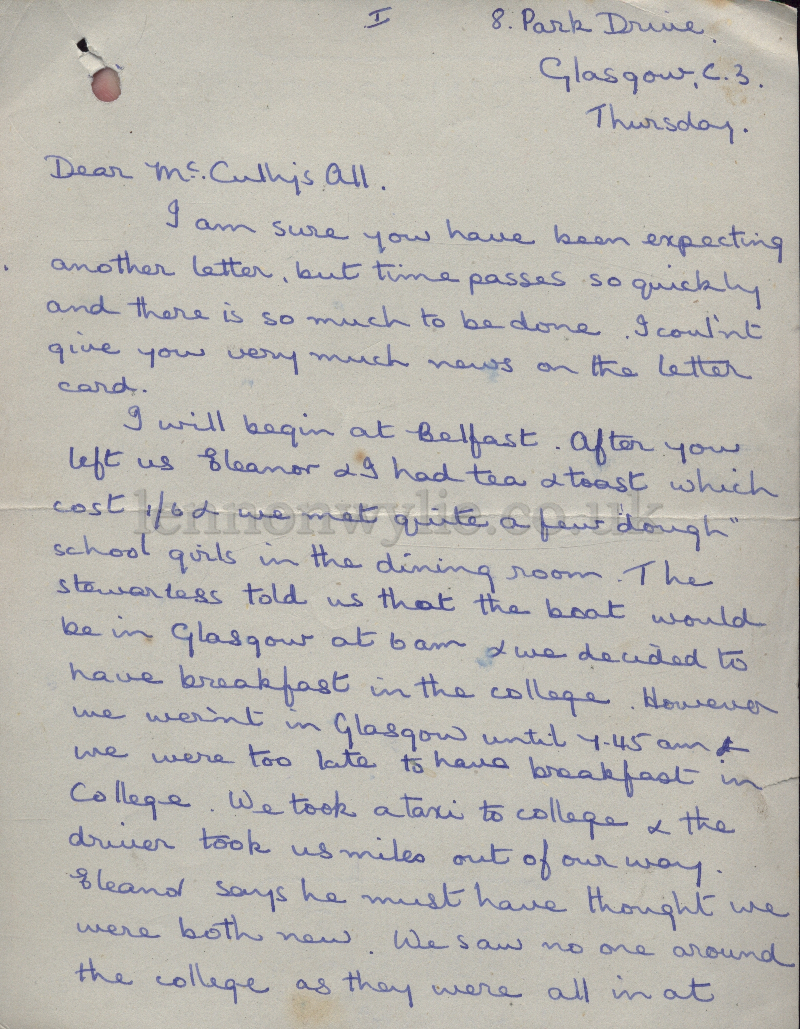 I
8. Park Drive.
Glasgow, C.3.
Thursday.
Dear Mc. Cullys All.
I am sure you have been expecting
another letter, but time passes so quickly
and there is so much to be done. I coul'nt
give you very much news on the letter
card.
I will begin at Belfast. After you
left us Eleanor & I had tea & toast which
cost 1/6 & we met quite a few "dough"
school girls in the dining room. The
stewardess told us that the boat would
be in Glasgow at 6 am & we decided to
have breakfast in the college. However
we wer'nt in Glasgow until 7.45 am &
we were too late to have breakfast in
College. We took a taxi to college & the
driver took us miles out of our way.
Eleanor says he must have thought we
were both new. We saw no one around
the college as they were all in at
lennonwylie.co.uk